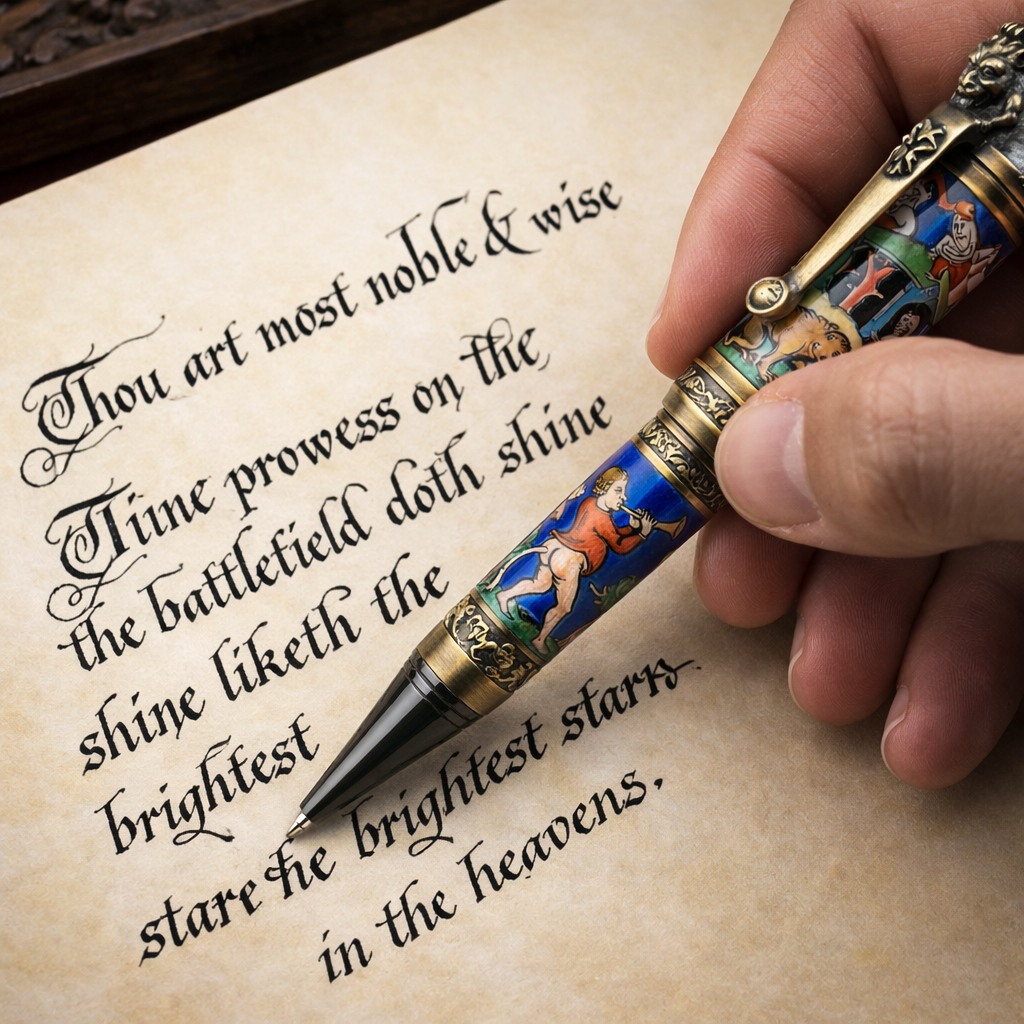 Thou art most noble & wise
Thine prowess on the
the battlefield doth shine
shine liketh the
brightest
stare the brightest starrs
in the heavens.